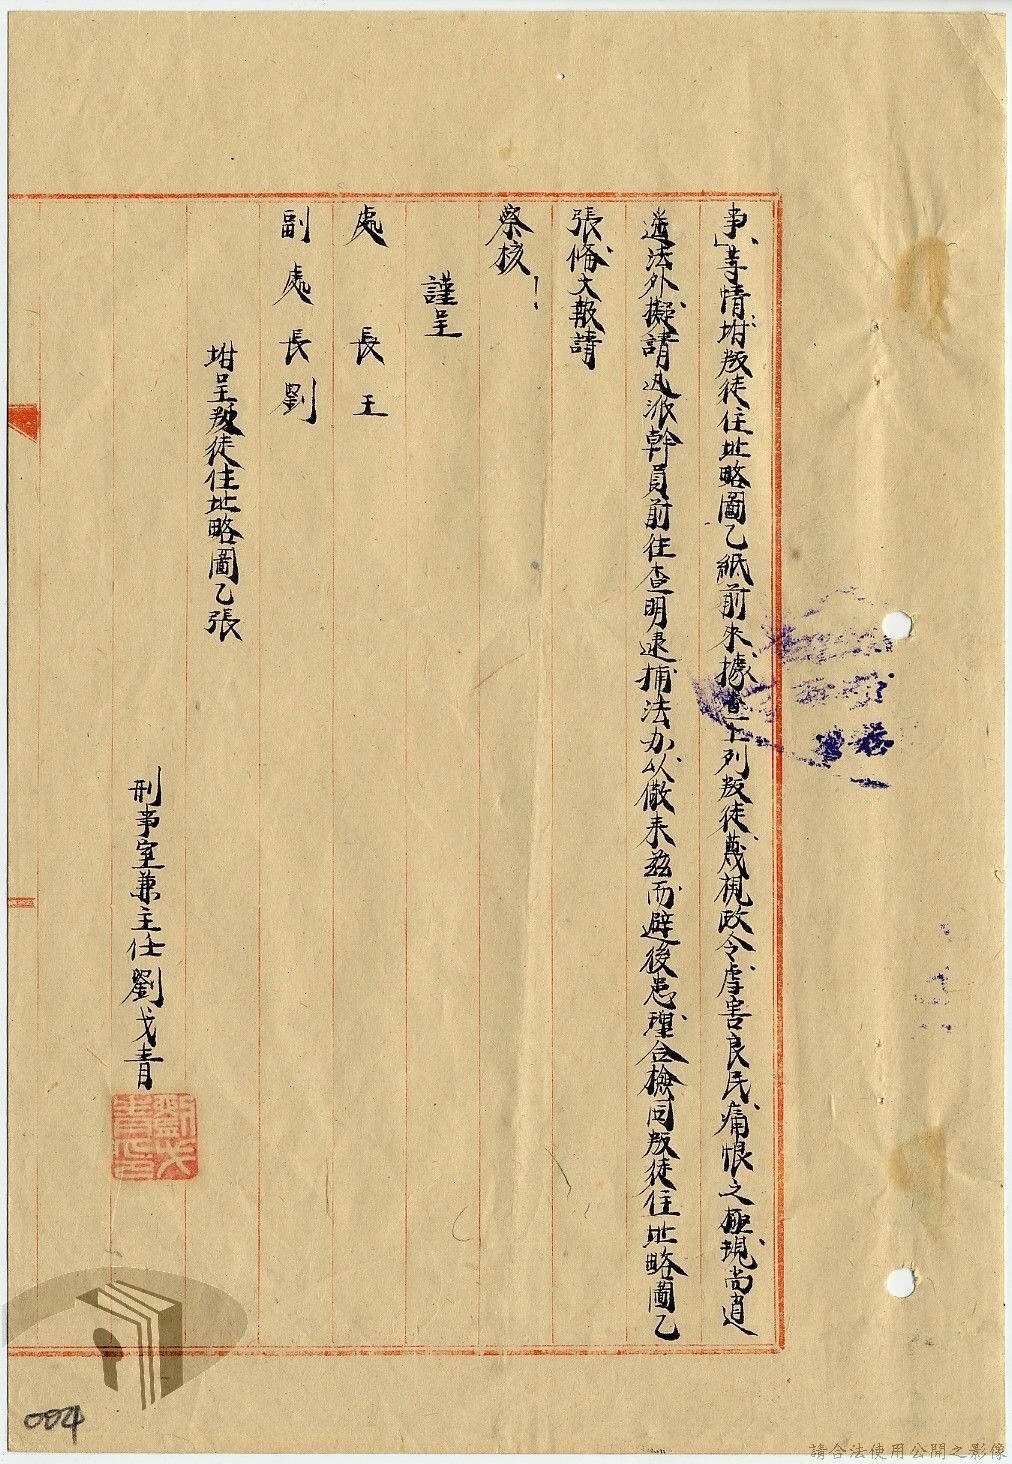 事」等情坿叛徒住址略圖乙紙前來據查上列叛徒蔑視政令虐害良民痛恨之極現尚逍
遙法外擬請迅派幹員前往查明逮捕法办以儆来茲而避後患理合檢同叛徒住址略圖乙
張備文報請
察核！
謹呈
處長王
副處長劉
坿呈叛徒住址略圖乙張
刑事室兼主任劉戈青
劉戈青印
004
請合法使用公開之影像